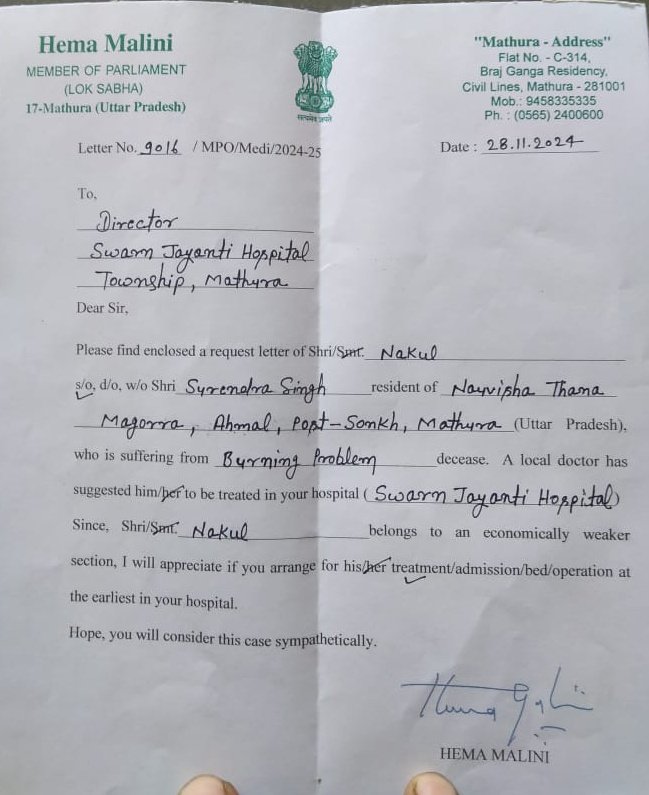 Hema Malini
MEMBER OF PARLIAMENT
(LOK SABHA)
17-Mathura (Uttar Pradesh)
सत्यमेव जयते
"Mathura - Address"
Flat No. - C-314,
Braj Ganga Residency,
Civil Lines, Mathura - 281001
Mob.: 9458335335
Ph. : (0565) 2400600
Letter No. 9016 / MPO/Medi/2024-25
Date : 28.11.2024
To,
Director
Swarn Jayanti Hospital
Township, Mathura
Dear Sir,
Please find enclosed a request letter of Shri/Smt. Nakul
s/o, d/o, w/o Shri Surendra Singh resident of Nayvisha Thana
Magorra, Ahmal, Post-Sonkh, Mathura (Uttar Pradesh),
who is suffering from Burning Problem decease. A local doctor has
suggested him/her to be treated in your hospital (Swarn Jayanti Hospital)
Since, Shri/Smt. Nakul belongs to an economically weaker
section, I will appreciate if you arrange for his/her treatment/admission/bed/operation at
the earliest in your hospital.
Hope, you will consider this case sympathetically.
Hema Malini
HEMA MALINI